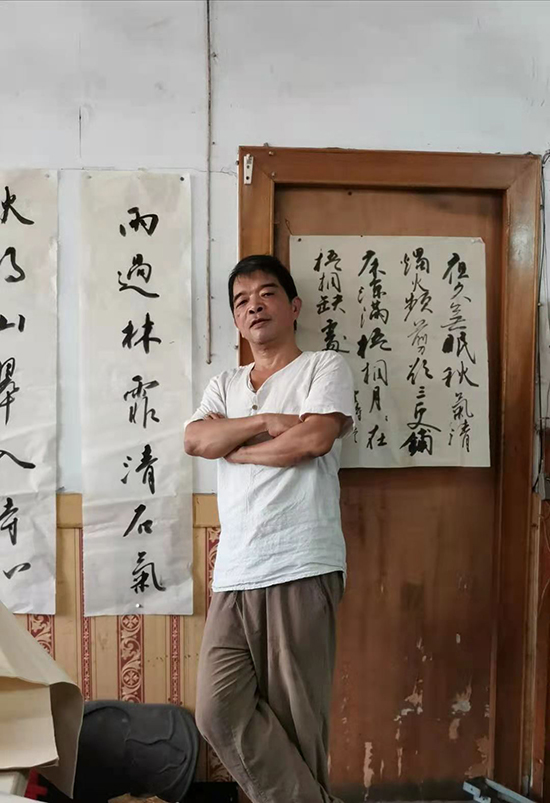 夜久無眠秋氣清
燭火頻剪欲三更鋪
床涼滿梧桐月〻在
梧桐缺處
雨過林霏清石氣
山翠入